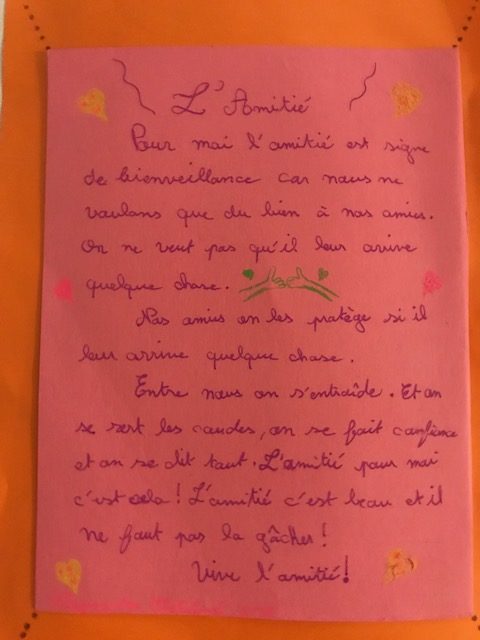 L'Amitié
Pour moi l'amitié est signe
de bienveillance car nous ne
voulons que du bien à nos amies.
On ne veut pas qu'il leur arrive
quelque chose.
Nos amies on les protège si il
leur arrive quelque chose.
Entre nous on s'entraîde. Et on
se sert les coudes, on se fait confiance
et on se dit tout. L'amitié pour moi
c'est cela ! L'amitié c'est beau et il
ne faut pas la gâcher !
Vive l'amitié !